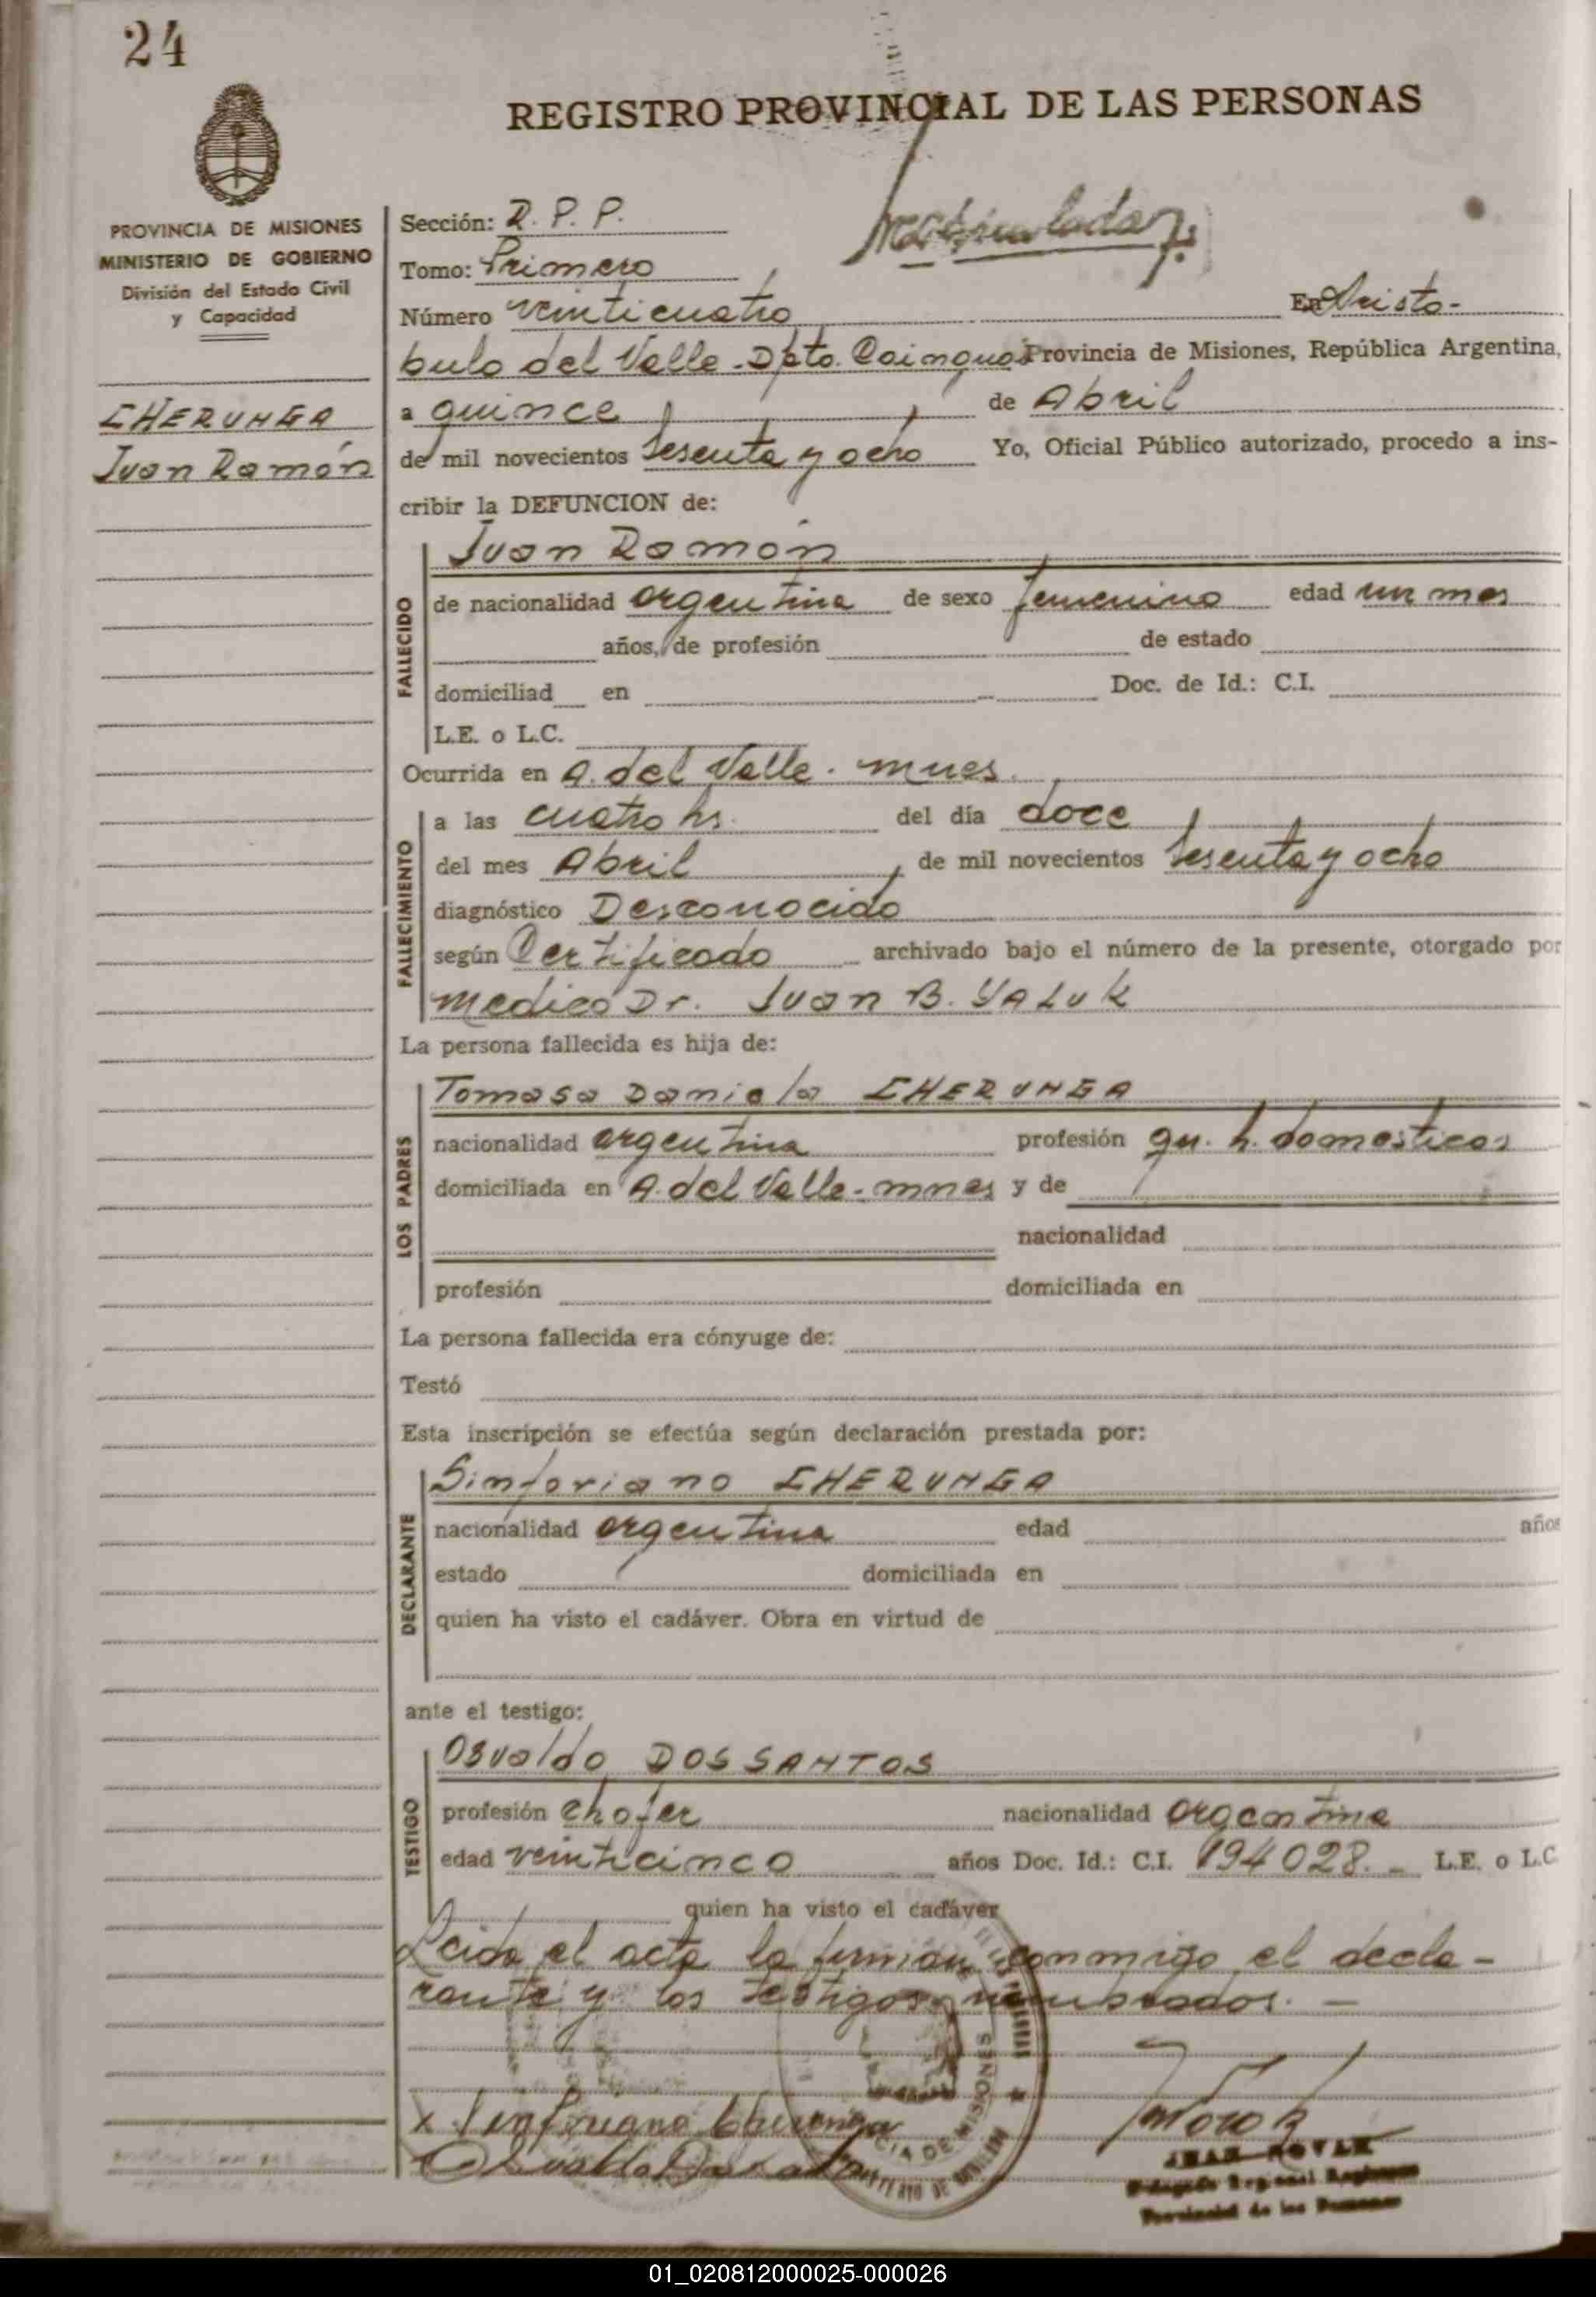 24
REGISTRO PROVINCIAL DE LAS PERSONAS
PROVINCIA DE MISIONES
MINISTERIO DE GOBIERNO
División del Estado Civil
y Capacidad
CHERUNGA
Juan Ramón
Sección: R. P. P.
Tomo: Primero
Número veinticuatro En Aristo-
bulo del Valle - Dpto. Cainguas Provincia de Misiones, República Argentina,
a quince de Abril
de mil novecientos sesenta y ocho Yo, Oficial Público autorizado, procedo a ins-
cribir la DEFUNCION de:
FALLECIDO
Juan Ramón
de nacionalidad argentina de sexo femenino edad un mes
años, de profesión de estado
domiciliad en Doc. de Id.: C.I.
L.E. o L.C.
Ocurrida en A. del Valle - mnes.
FALLECIMIENTO
a las cuatro hs. del día doce
del mes Abril, de mil novecientos sesenta y ocho
diagnóstico Desconocido
según Certificado archivado bajo el número de la presente, otorgado por
medico Dr. Juan B. YALUK
La persona fallecida es hija de:
LOS PADRES
Tomasa Daniela CHERUNGA
nacionalidad argentina profesión qu. h. domesticos
domiciliada en A. del Valle - mnes y de
nacionalidad
profesión domiciliada en
La persona fallecida era cónyuge de:
Testó
Esta inscripción se efectúa según declaración prestada por:
DECLARANTE
Sinforiano CHERUNGA
nacionalidad argentina edad años
estado domiciliada en
quien ha visto el cadáver. Obra en virtud de
ante el testigo:
TESTIGO
Osvaldo DOS SANTOS
profesión chofer nacionalidad argentina
edad veinticinco años Doc. Id.: C.I. 194028. - L.E. o L.C.
quien ha visto el cadáver
Leida el acta la firman conmigo el decla-
rante y los testigos
x Sinforiano Cherunga
PROVINCIA DE MISIONES
MINISTERIO DE GOBIERNO
Delegado Regional Registro
Provincial de las Personas
01_020812000025-000026